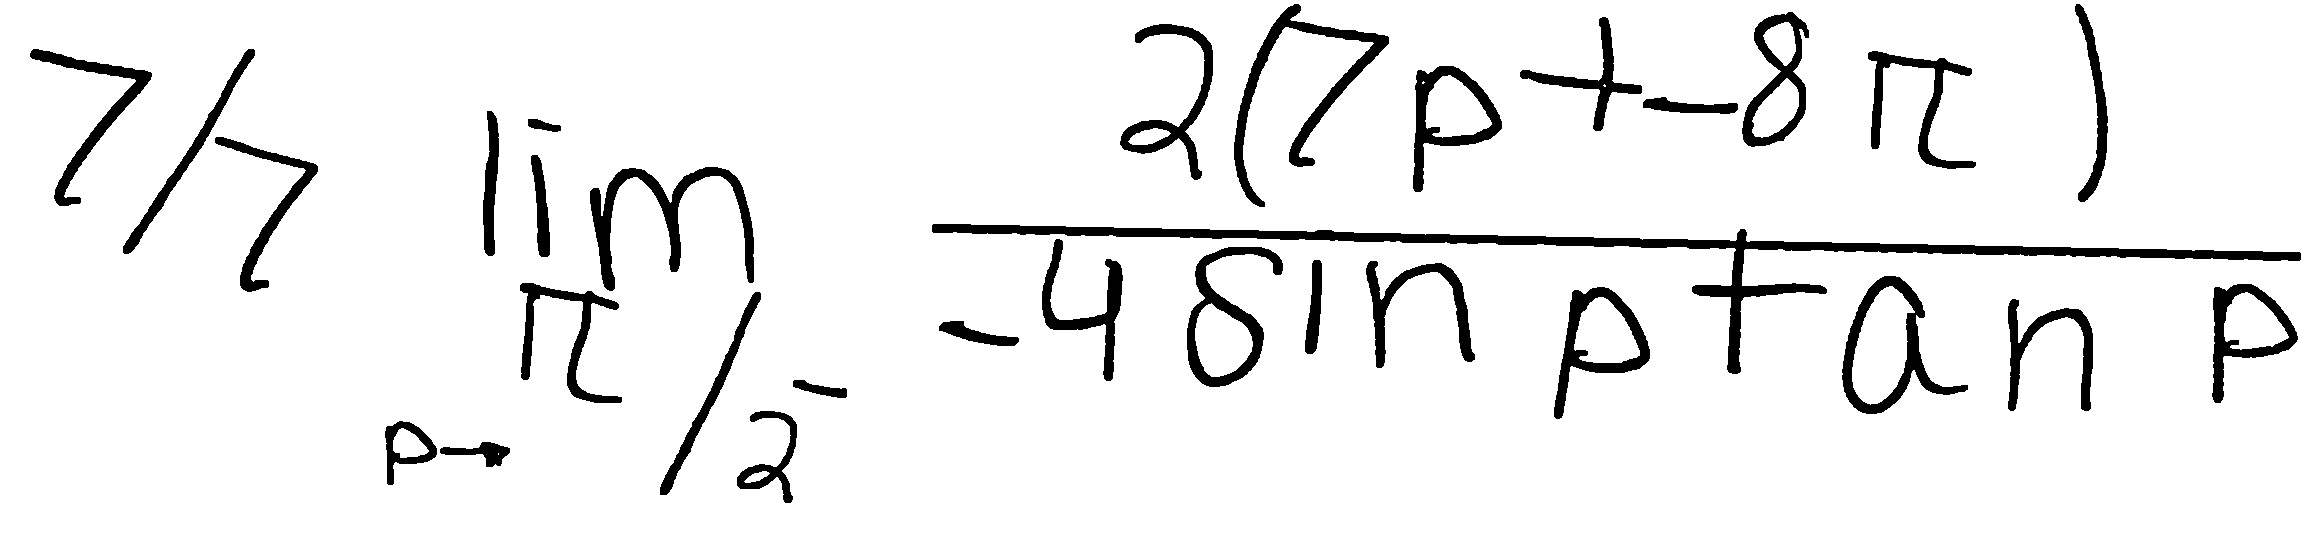 7/7 lim p→π/2⁻ 2(7p+-8π)/-4sin p tan p